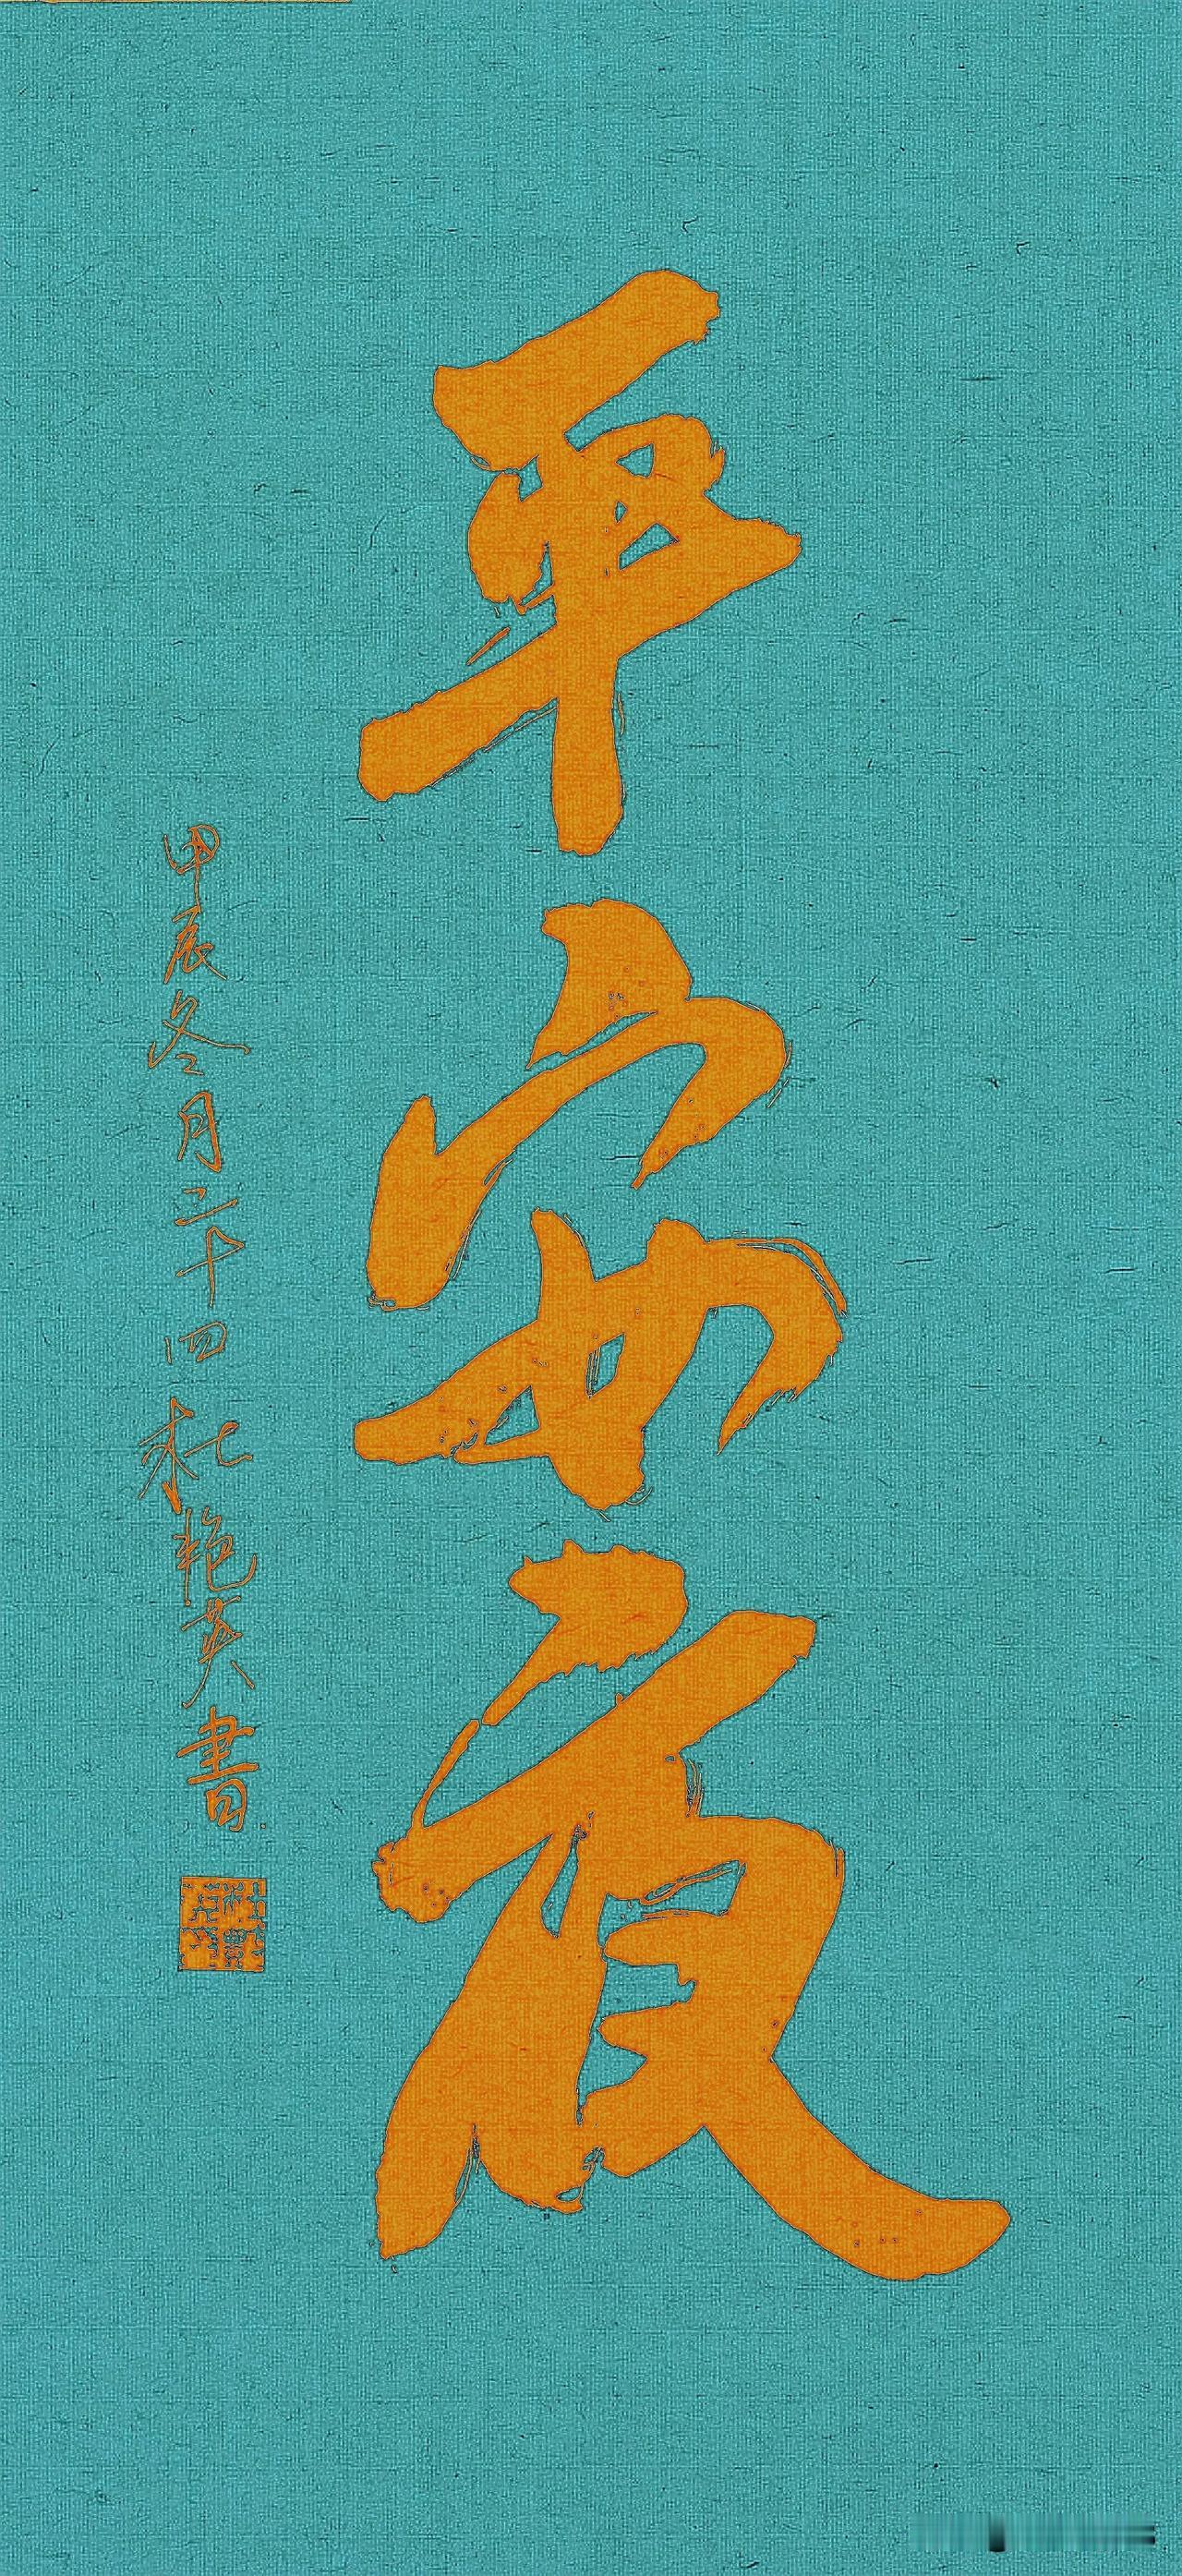 平安夜
甲辰冬月二十四杜艳英書